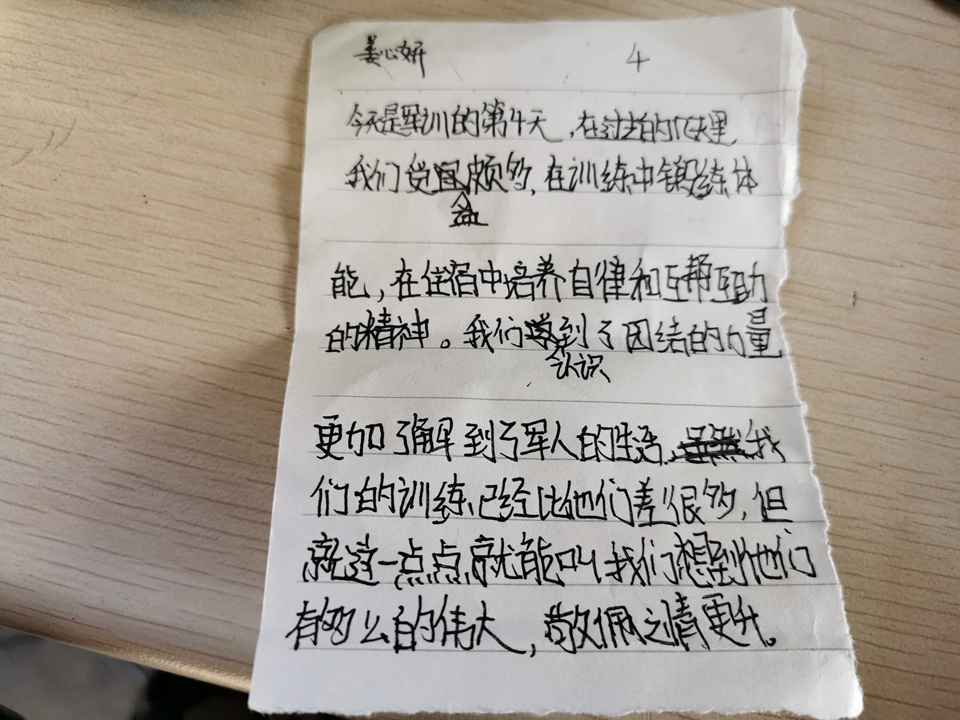 姜心妍 4
今天是军训的第4天,在过去的几天里
我们受益颇多,在训练中锻练体
能,在住宿中培养自律和互帮互助
的精神。我们认识到了团结的力量
更加了解到了军人的生活,我
们的训练已经比他们差很多,但
就这一点点就能叫我们想到他们
有多么的伟大,敬佩之情更升。